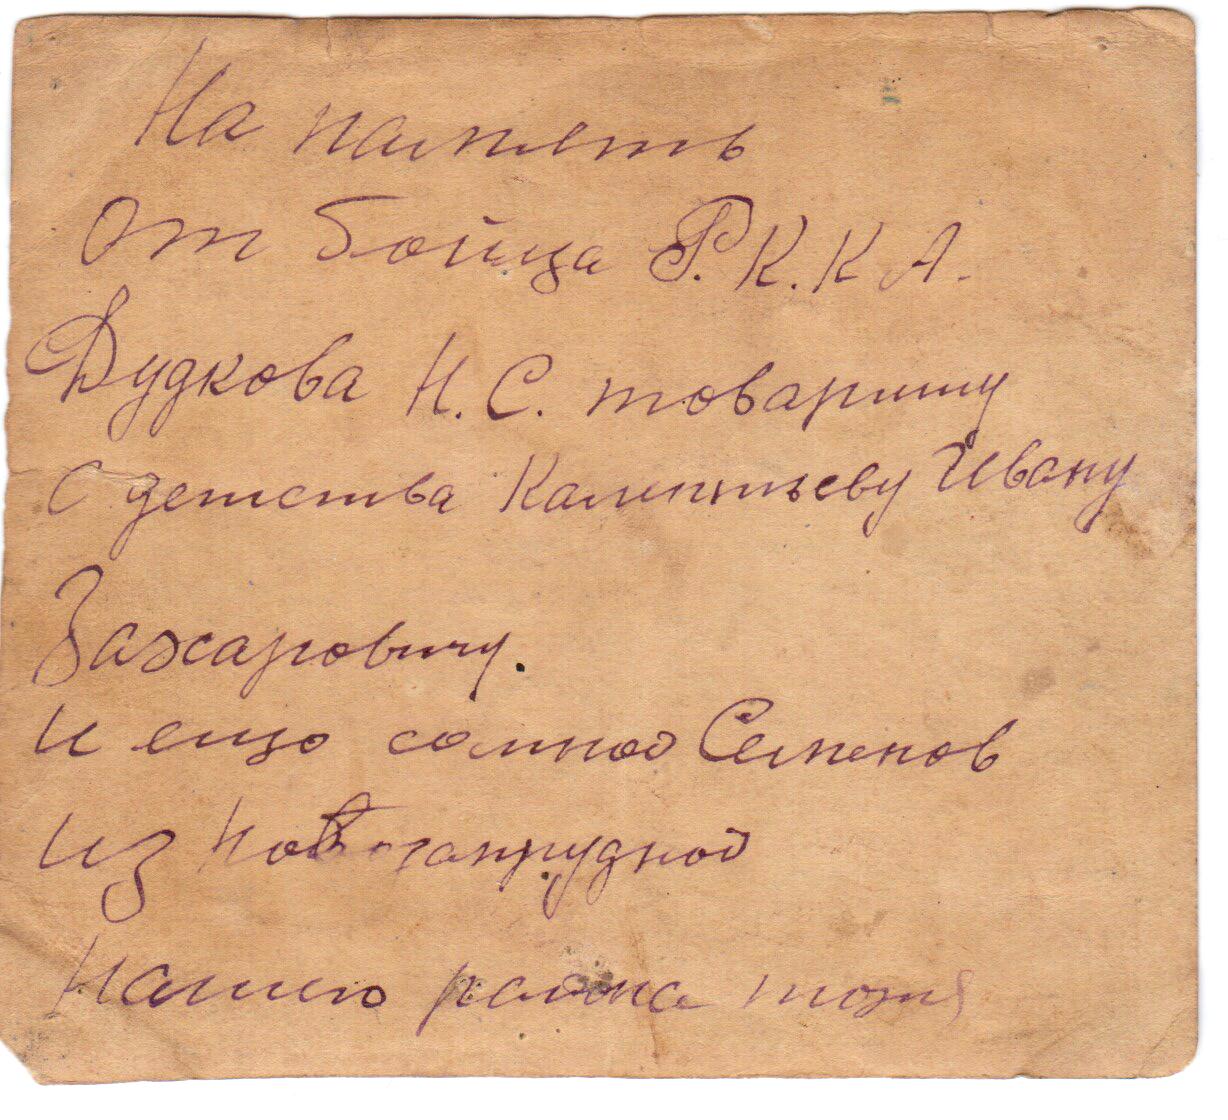 На память
от бойца Р.К.К А.
Дудкова Н.С. товарищу
с детства Калентьеву Ивану
Захаровичу.
и ещо сомной Семенов
из Новозапрудной
Нашего района тоже